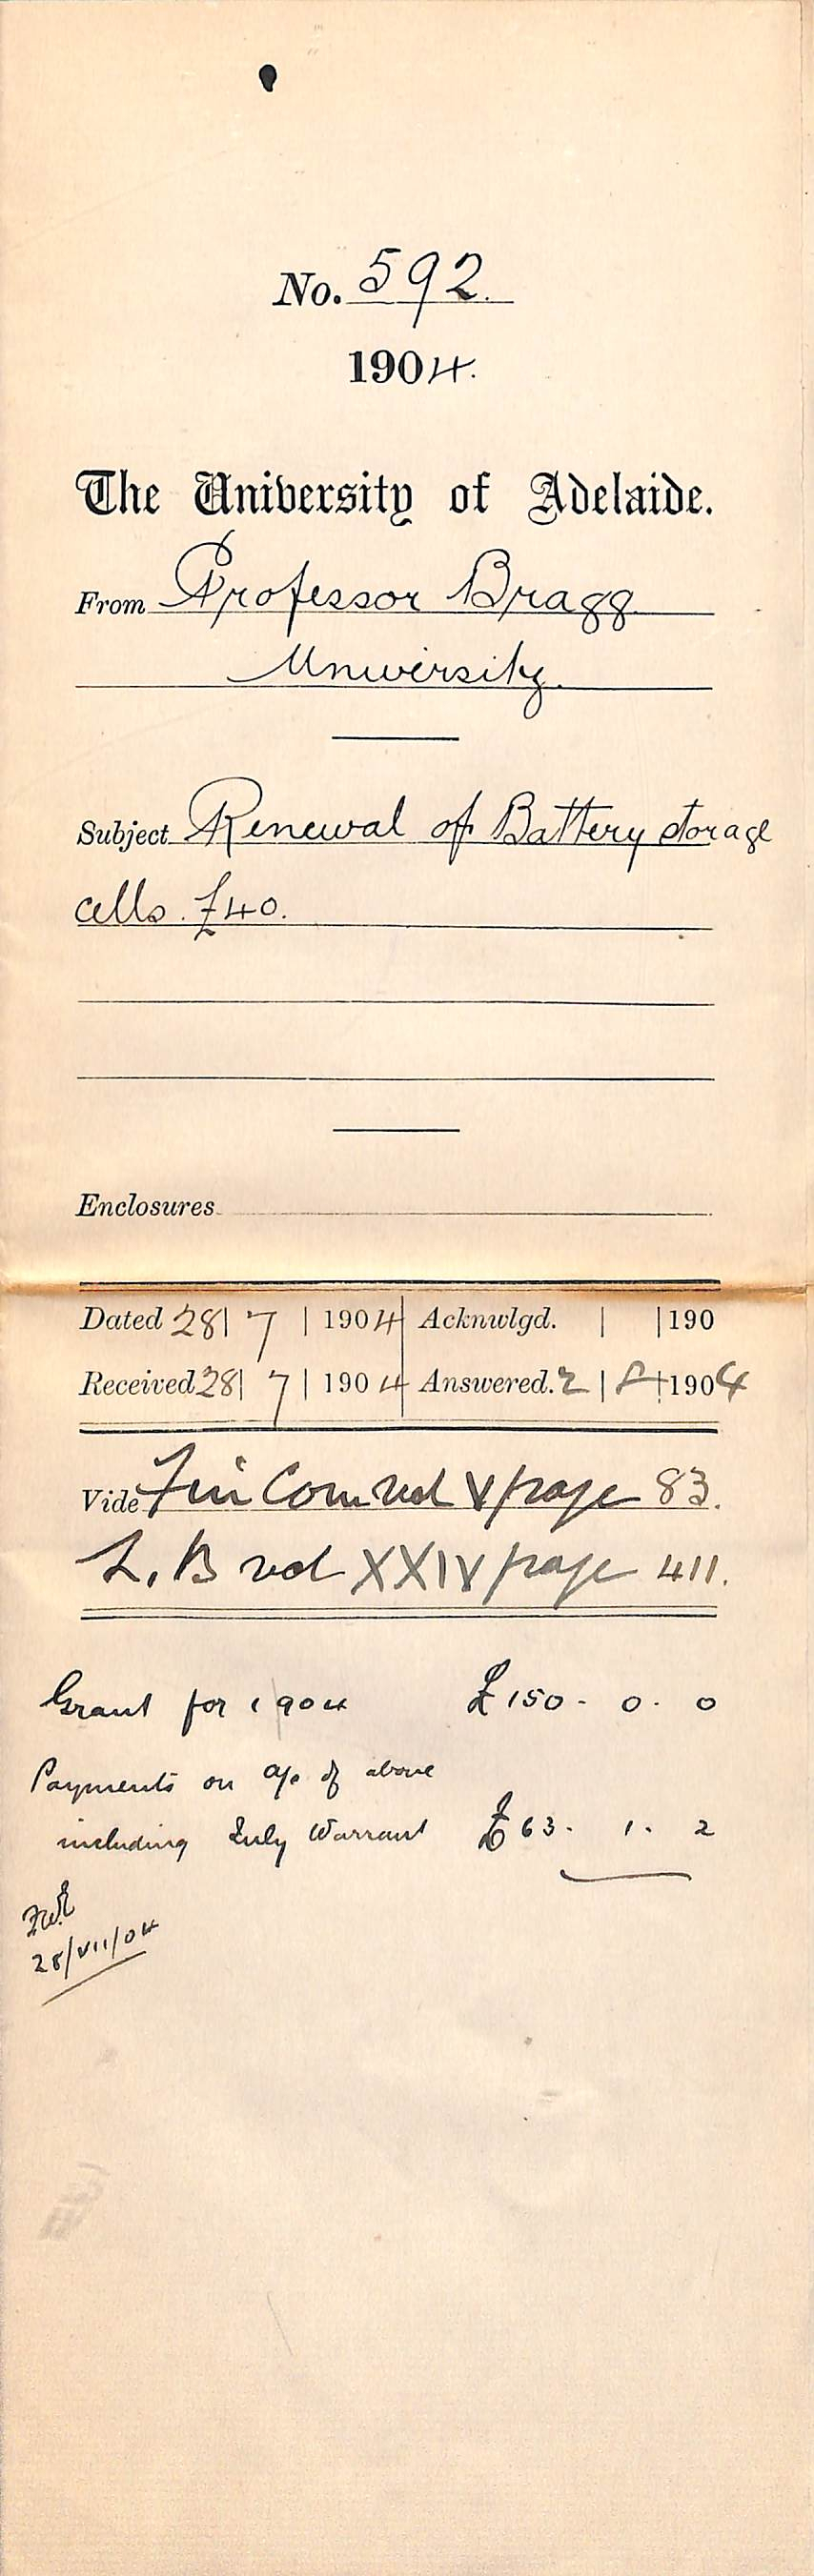 No. 592.
1904.
The University of Adelaide.
From Professor Bragg
University.
Subject Renewal of Battery storage
cells. £40.
Enclosures
Dated 28| 7 | 1904 Acknwlgd. | |190
Received 28| 7 | 1904 Answered. 2 | 8 |1904
Vide Fin Com vol V page 83.
L. B vol XXIV page 411.
Grant for 1904 £150 - 0 - 0
Payments on a/c of above
including July Warrant £63 - 1 - 2
28/VII/04